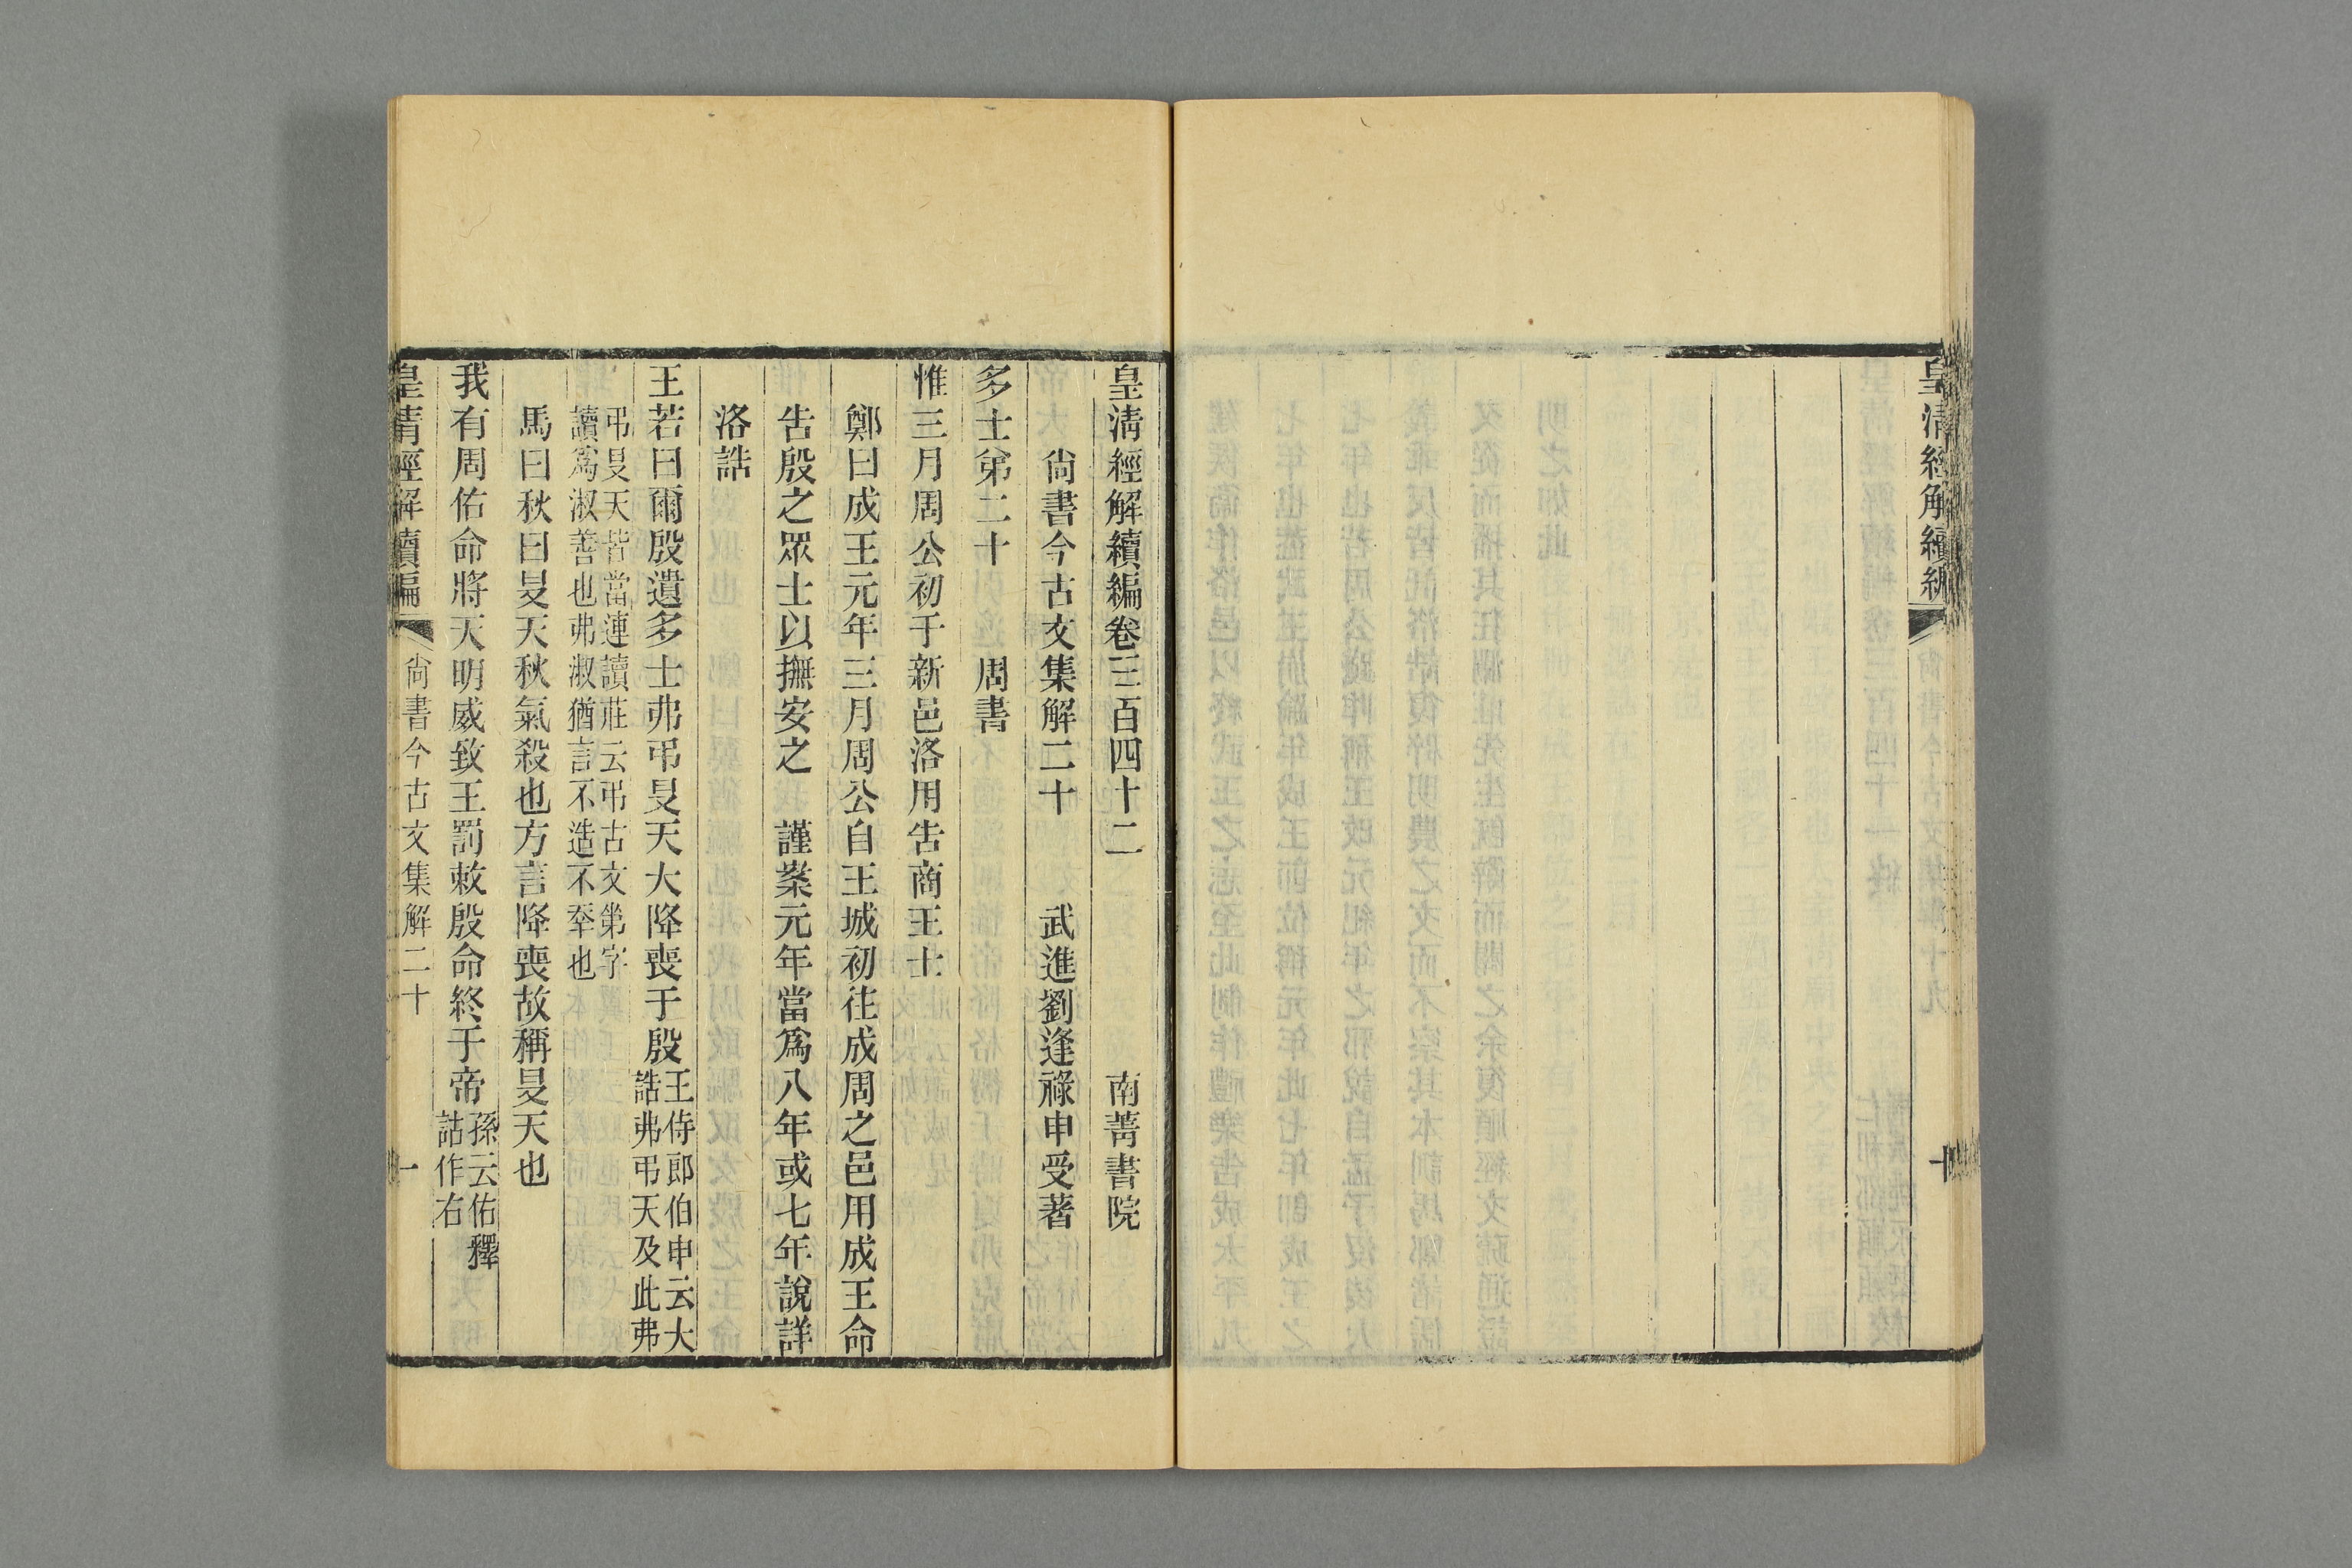 皇清經解續編
皇清經解續編卷三百四十二 南菁書院
尙書今古文集解二十 武進劉逢祿申受著
多士弟二十 周書
惟三月周公初于新邑洛用告商王士
鄭曰成王元年三月周公自王城初往成周之邑用成王命
告殷之眾士以撫安之 謹案元年當爲八年或七年說詳
洛誥
王若曰爾殷遺多士弗弔旻天大降喪于殷
王侍郎伯申云大
誥弗弔天及此弗
弔旻天皆當連讀莊云弔古文弟字
讀爲淑善也弗淑猶言不造不奉也
馬曰秋曰旻天秋氣殺也方言降喪故稱旻天也
我有周佑命將天明威致王罰敕殷命終于帝
孫云佑釋
詁作右
皇清經解續編 尙書今古文集解二十 一